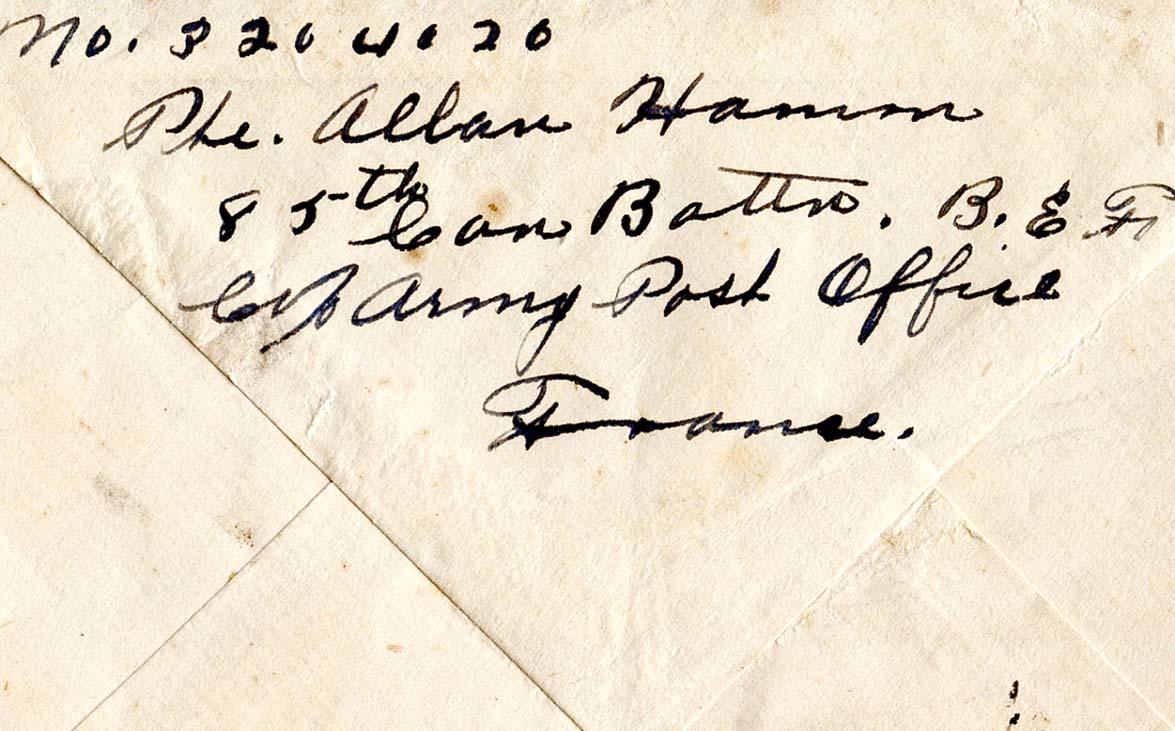 No. 3204020
Pte. Allan Hamm
85th Can Battn. B. E F
C/o Army Post Office
France.